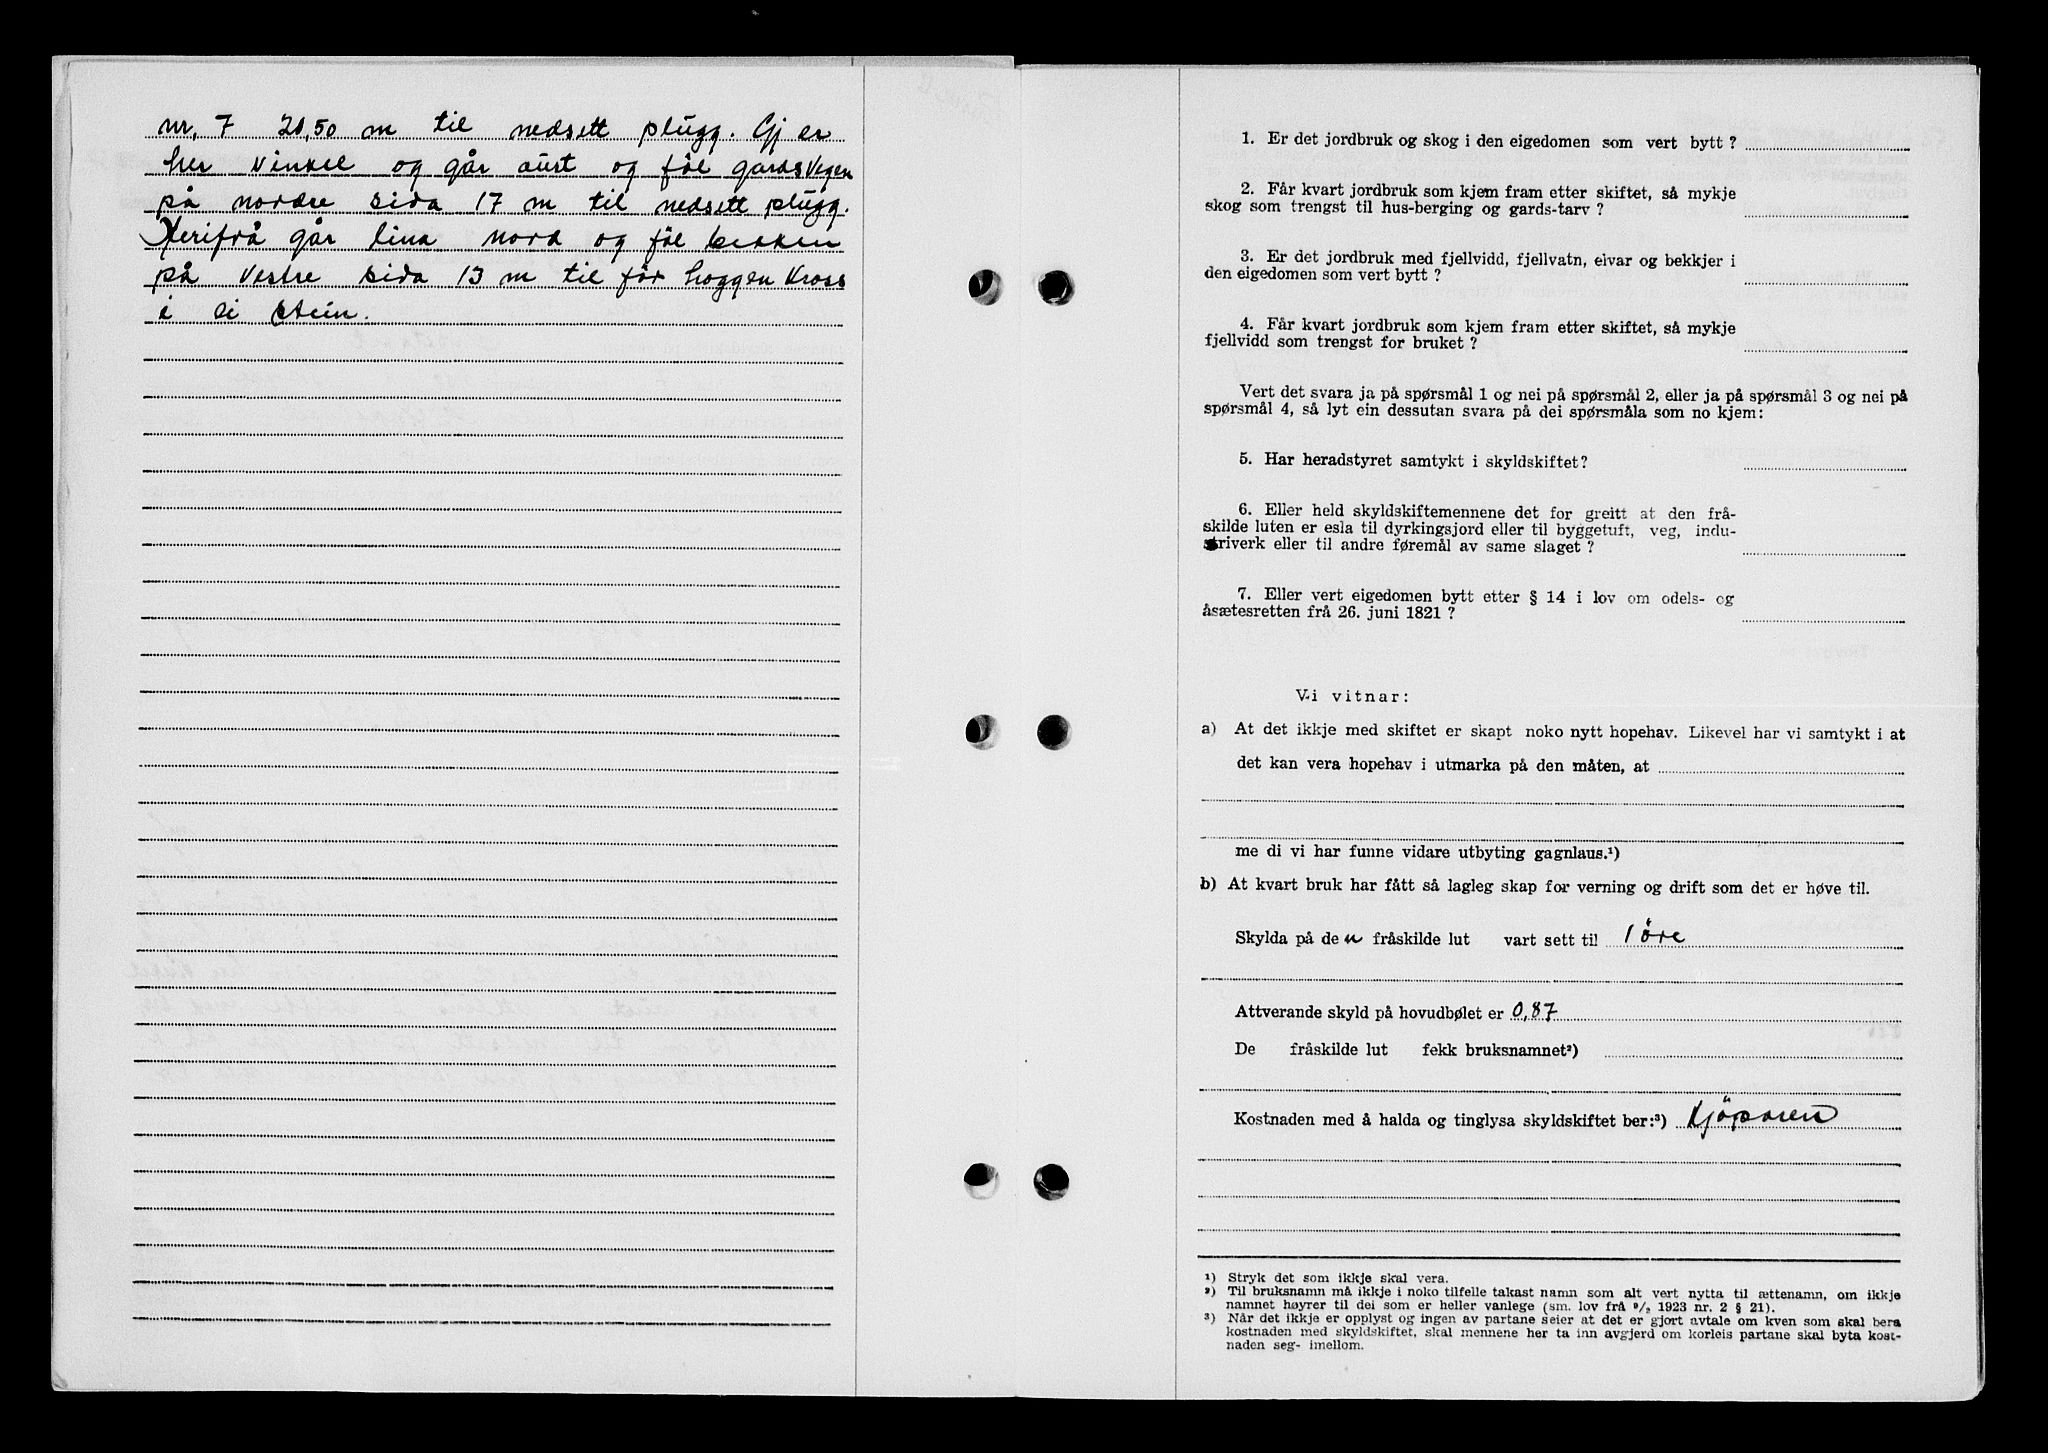 nr. 7 20,50 m til nedsett plugg. Gj er
her vinkel og går aust og föl gardsvegen
på nordre sida 17 m til nedsett plugg.
Herifrå går lina nord og föl bekken
på vestre sida 13 m til för hoggen kross
i ei stein.
1. Er det jordbruk og skog i den eigedomen som vert bytt ?
2. Får kvart jordbruk som kjem fram etter skiftet, så mykje
skog som trengst til hus-berging og gards-tarv ?
3. Er det jordbruk med fjellvidd, fjellvatn, elvar og bekkjer i
den eigedomen som vert bytt ?
4. Får kvart jordbruk som kjem fram etter skiftet, så mykje
fjellvidd som trengst for bruket ?
Vert det svara ja på spørsmål 1 og nei på spørsmål 2, eller ja på spørsmål 3 og nei på
spørsmål 4, så lyt ein dessutan svara på dei spørsmåla som no kjem:
5. Har heradstyret samtykt i skyldskiftet?
6. Eller held skyldskiftemennene det for greitt at den frå-
skilde luten er esla til dyrkingsjord eller til byggetuft, veg, indu-
striverk eller til andre føremål av same slaget ?
7. Eller vert eigedomen bytt etter § 14 i lov om odels- og
åsætesretten frå 26. juni 1821 ?
Vi vitnar:
a) At det ikkje med skiftet er skapt noko nytt hopehav. Likevel har vi samtykt i at
det kan vera hopehav i utmarka på den måten, at
me di vi har funne vidare utbyting gagnlaus.¹)
b) At kvart bruk har fått så lagleg skap for verning og drift som det er høve til.
Skylda på den fråskilde lut vart sett til 1 öre
Attverande skyld på hovudbølet er 0,87
De fråskilde lut fekk bruksnamnet²)
Kostnaden med å halda og tinglysa skyldskiftet ber:³) Kjöparen
¹) Stryk det som ikkje skal vera.
²) Til bruksnamn må ikkje i noko tilfelle takast namn som alt vert nytta til ættenamn, om ikkje
namnet høyrer til dei som er heller vanlege (sm. lov frå ⁹/₂ 1923 nr. 2 § 21).
³) Når det ikkje er opplyst og ingen av partane seier at det er gjort avtale om kven som skal bera
kostnaden med skyldskiftet, skal mennene her ta inn avgjerd om korleis partane skal byta kost-
naden seg- imellom.